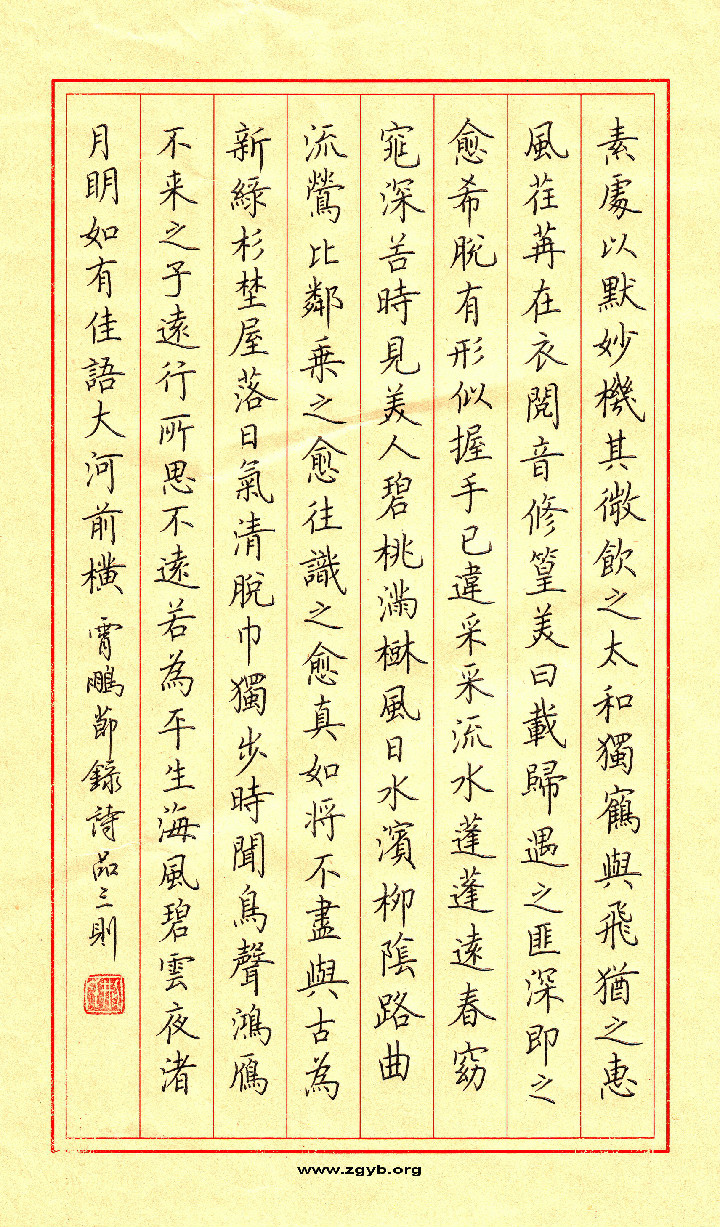 素處以默妙機其微飲之太和獨鶴與飛猶之惠
風荏苒在衣閱音修篁美曰載歸遇之匪深即之
愈希脫有形似握手已違采采流水蓬蓬遠春窈
窕深谷時見美人碧桃滿樹風日水濱柳陰路曲
流鶯比鄰乘之愈往識之愈真如將不盡與古為
新綠杉埜屋落日氣清脫巾獨步時聞鳥聲鴻鴈
不来之子遠行所思不遠若為平生海風碧雲夜渚
月明如有佳語大河前橫 霄鵬節錄詩品三則
www.zgyb.org